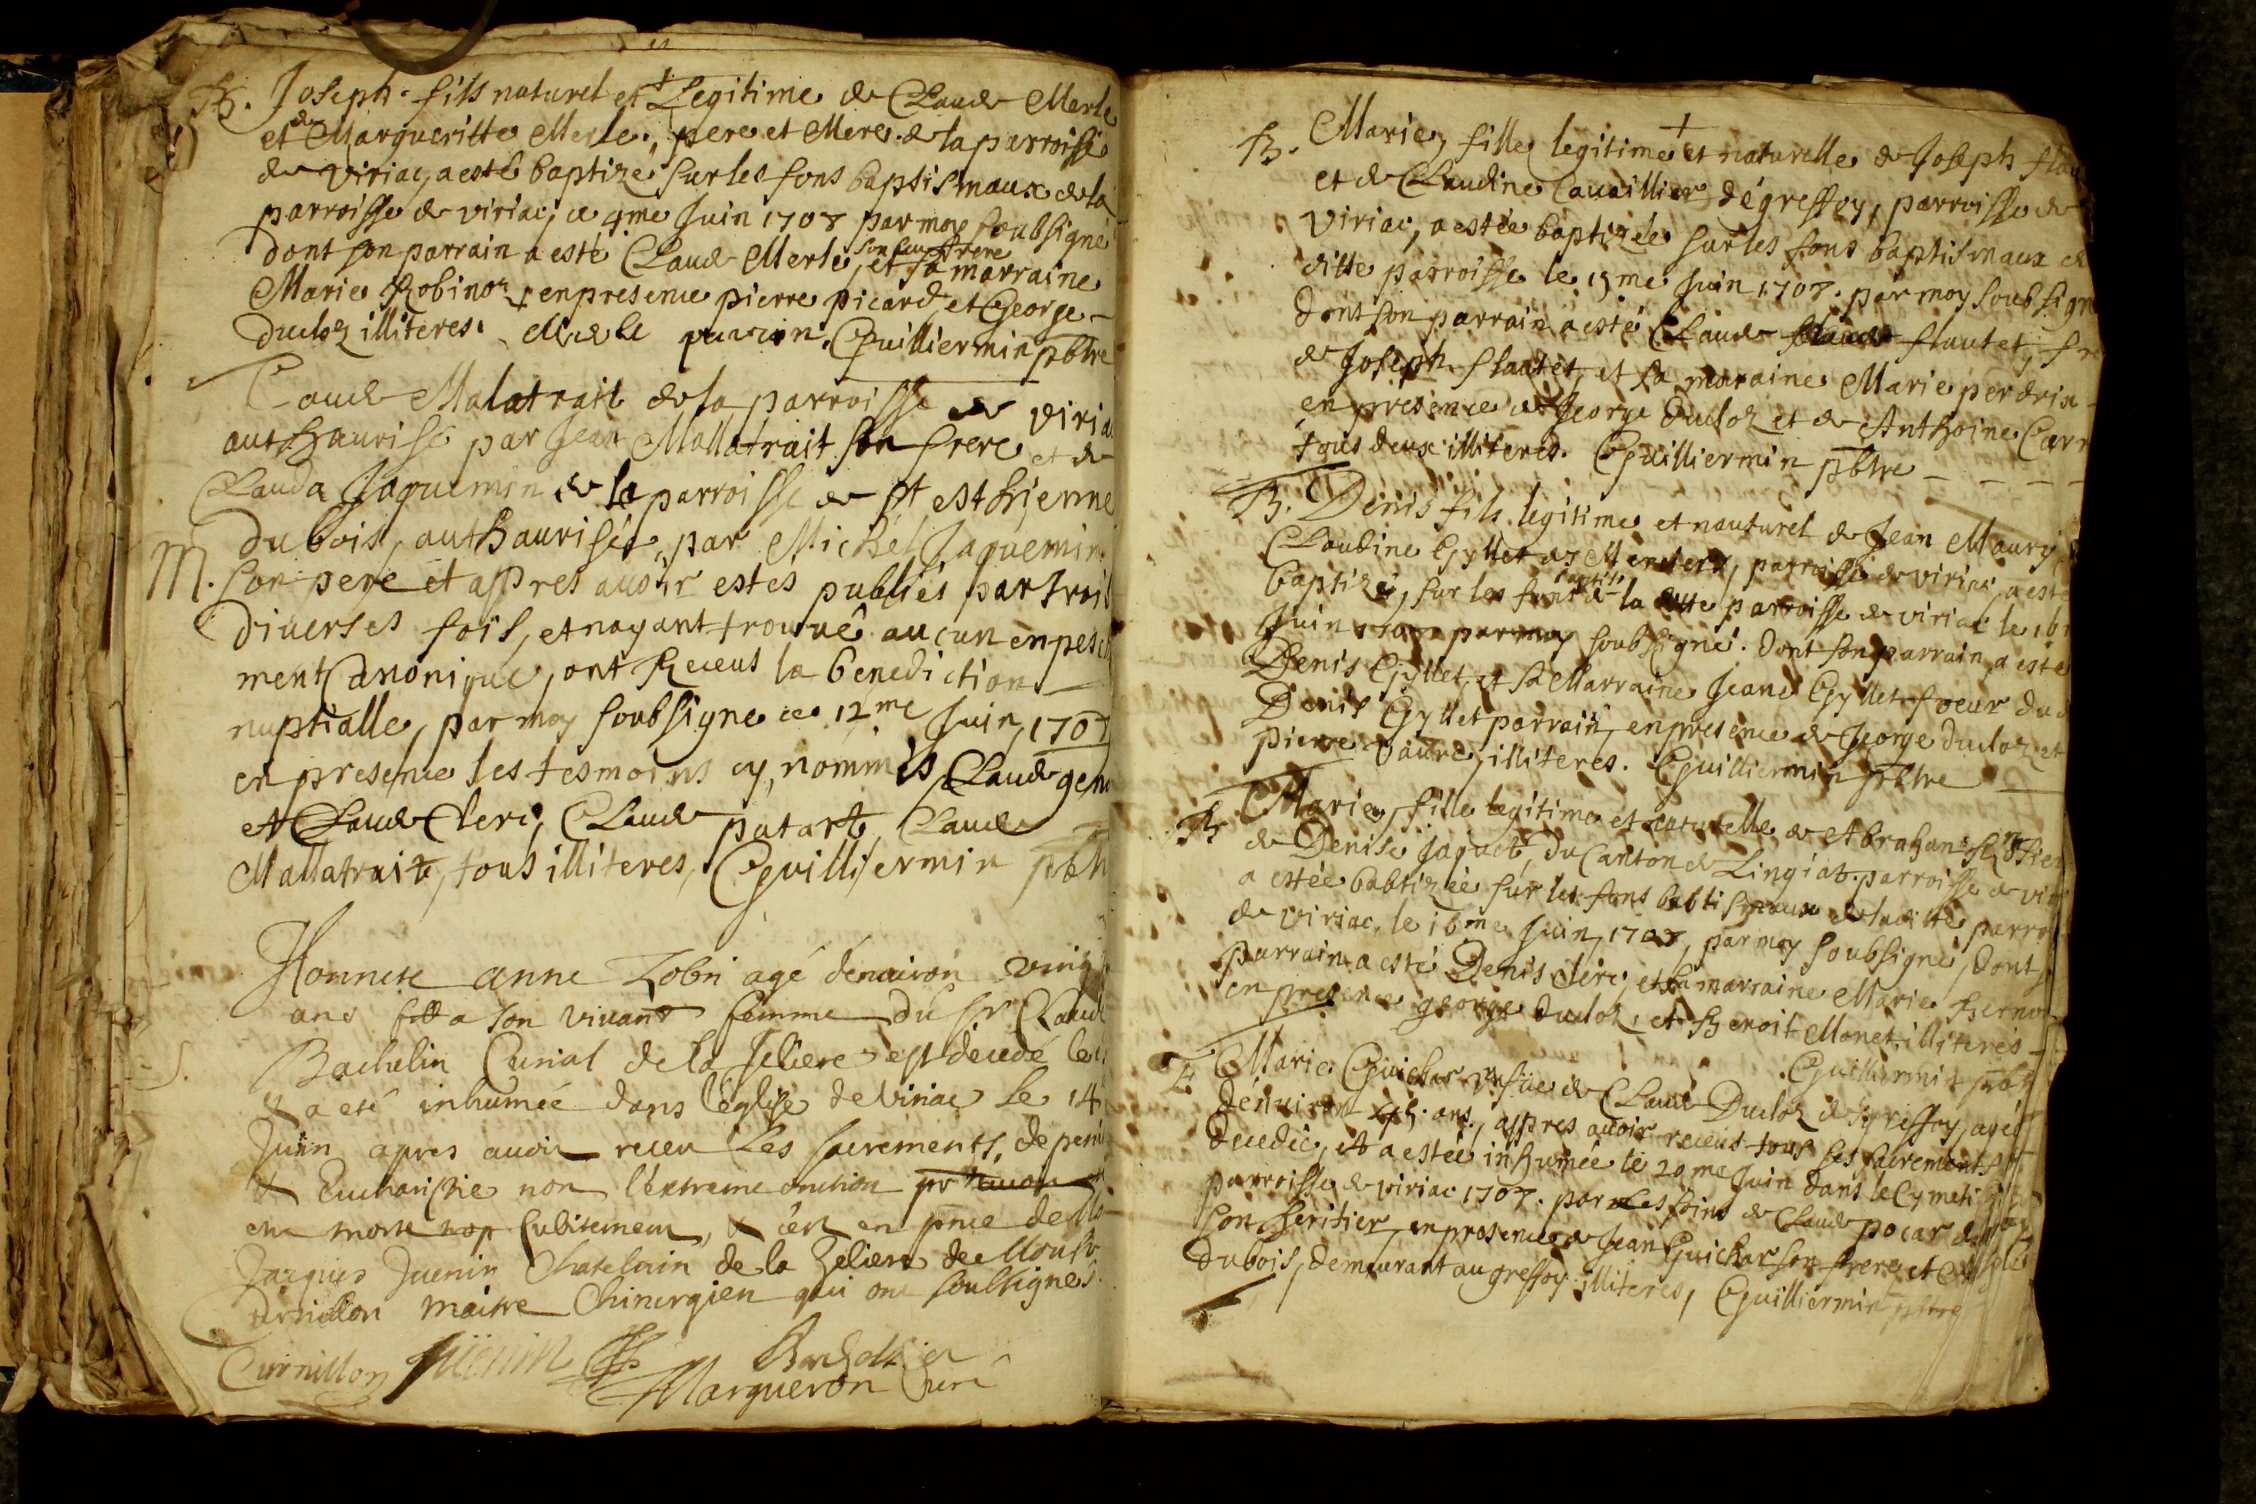 B. Joseph fils naturel et Legitime de Claude Merle
et de Margueritte Merle, pere et Mere de la parroisse
de viriac, a esté baptizé sur les fons baptismaux de la
parroisse de viriac, ce 4me Juin 1707 par moy soubsigné
dont son parrain a esté Claude Merle, son frere et sa marraine
Marie Robinoz en presence pierre picard, et George
ducloz illiteres. Guilliermin pbtre
Claude Malatrait de la parroisse de viriac
authaurisé par Jean Mallatrait son frere et de
Clauda Jaquemin de la parroisse de St esthienne
du bois, authaurisée, par Michel Jaquemin
M. son pere et appres auoir estés publiés par trois
diuerses fois, et nayant trouué aucun enpesche
ment Canonique, ont Receus la benediction
nuptialle, par moy soubsigne ce 12me Juin, 1707
en presence les tesmoins cy, nommés, Claude
et Claude Clerc, Claude putart, Claude
Mallatrait, tous illiteres, Guilliermin pbtre
Honneste anne agé denuiron vingt
ans a son viuant femme du sr Claude
Bachelin Curial de la Jeliere est decedé
& a eté inhumée dans l'eglise de viriac le 14
S. Juin apres auoir receu les sacrements, de peni
& Eucharistie non l'extreme onction
morte subitement, & c'est en pnce de
Jacques Juenin Chatelain de la Jeliere de
Curnillon maitre Chirurgien qui ont soubsignés
Curnillon Juenin
Margueron Curé
B. Marie, fille legitime et naturelle de Joseph
et de Claudine Cauaillier dégreffoy, parroisse de
viriac, a estée baptizée sur les fons baptismaux de
ditte parroisse le 15me Juin 1707. par moy soubsigné
dont son parrain a esté Claude flautet, fre
de Joseph flautet, et sa maraine Marie perdrix
en presence de George ducloz et de Anthoine
tous deux illiteres. Guilliermin pbtre
B. Denis fils legitime et nauturel de Jean Maury,
Claudine Gyllet, parroisse de viriac, a esté
baptizé, sur les fons de la ditte parroisse de viriac le 16
Juin 1707 par moy soubsigné. dont son parrain a esté
Denis Gyllet, et sa Marraine Jeane Gyllet soeur du
Denis Gyllet parrain, en presence de George ducloz et
pierre vaure, illiteres. Guilliermin pbtre
B. Marie, fille legitime et naturelle de Abraham
de Denise Jaquet, du Canton de Lingiat parroisse de viri
a estée babtizée sur les fons babtismaux de laditte parroi
de viriac, le 16me Juin, 1707, par moy soubsigné, dont
parrain a esté Denis Clerc, et sa marraine Marie
en presence george ducloz, et Benoit Monet illiteres
Guilliermin pbtr
Marie Guichar de Claude Ducloz de greffoy, agée
denuiron 45. ans, appres auoir receus tous ses sacrements
decedée, et a estée inhumée le 20me Juin dans le Cymeti
parroisse de viriac 1707. par les soins de Claude pocar
son heritier, en presence de Jean Guichar son frere et
dubois, demeurant au greffoy illiteres, Guilliermin pbtre